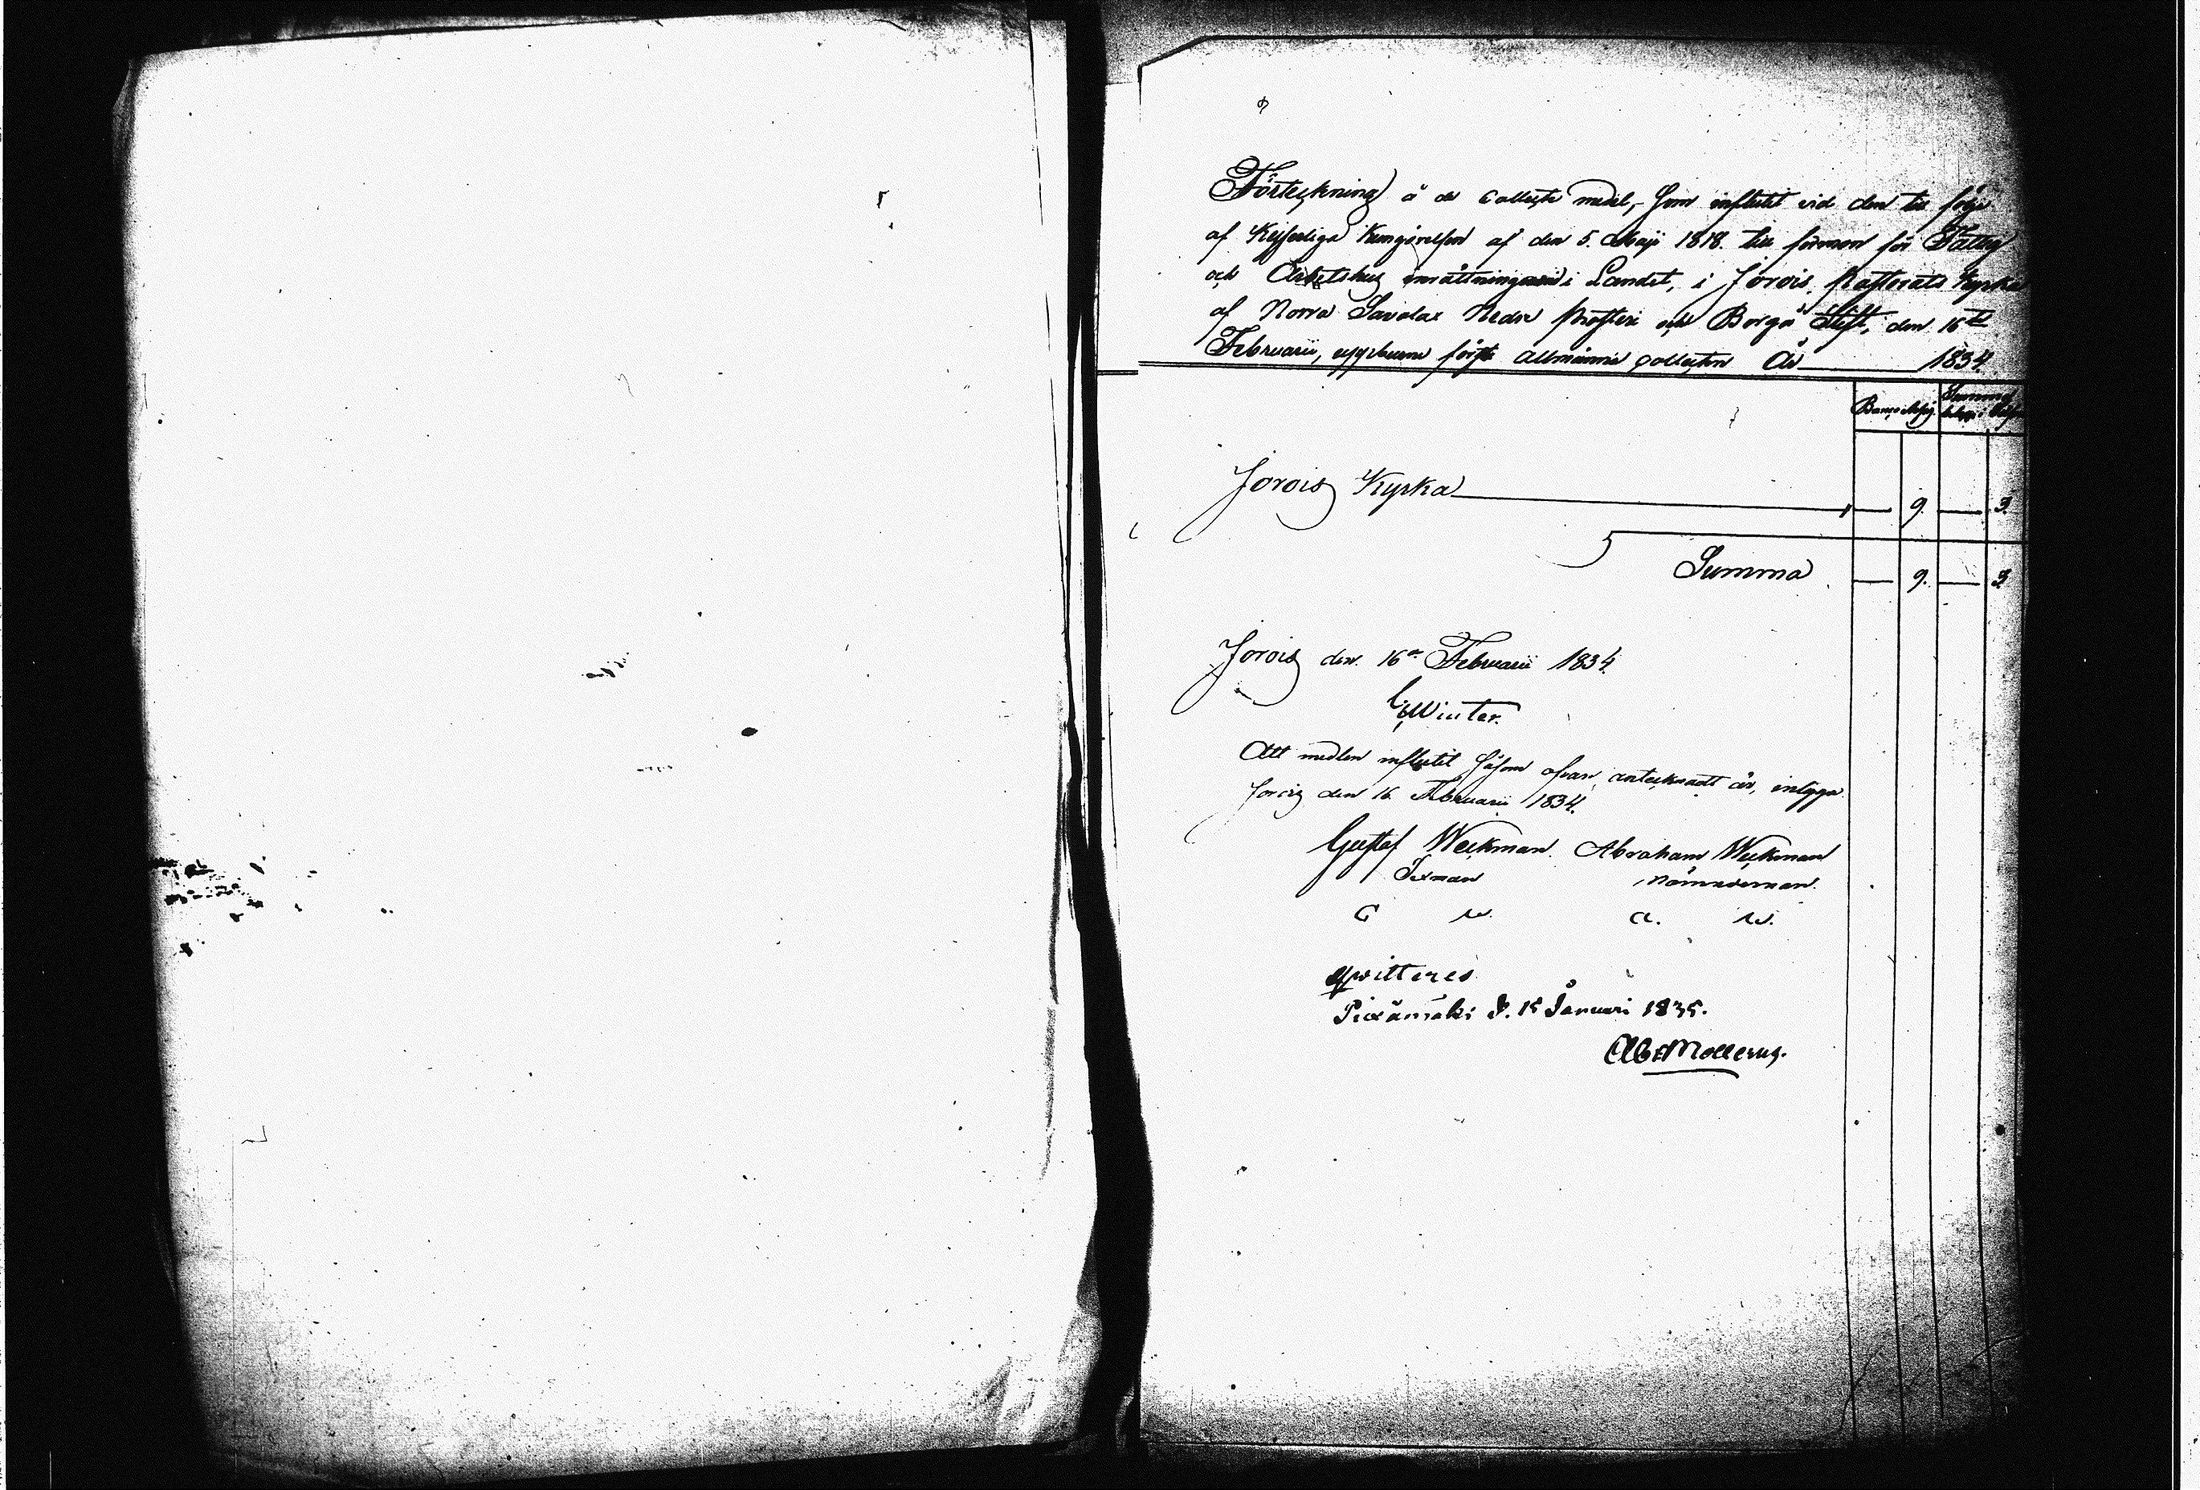 Förteckning å de Collecte medel, Som influtit vid den till följe
af Kejserliga Kungörelsen af den 5. Maji 1818. till förmon för Fattig
och Arbetshus inrättningarne i Landet, i Jorois Pastorats Kyrka
af Norra Savolax Nedre Prosteri och Borgå Stift, den 16de
Februarii, uppburne första Allmänna Collecten År 1834.
Banco Assig. Summa
Jorois Kyrka — 9. — 3.
Summa — 9. — 3
Jorois den 16de Februarii 1834.
Winter.
Att medlen influtit Såsom ofvan antecknadt är, intyga
Jorois den 16 Februarii 1834.
Gustaf Weckman. Abraham Weckman
Sexman Nämndeman.
G W. A. W.
qwitteres
Piexämäki d. 15 Januari 1835.
Molterus.